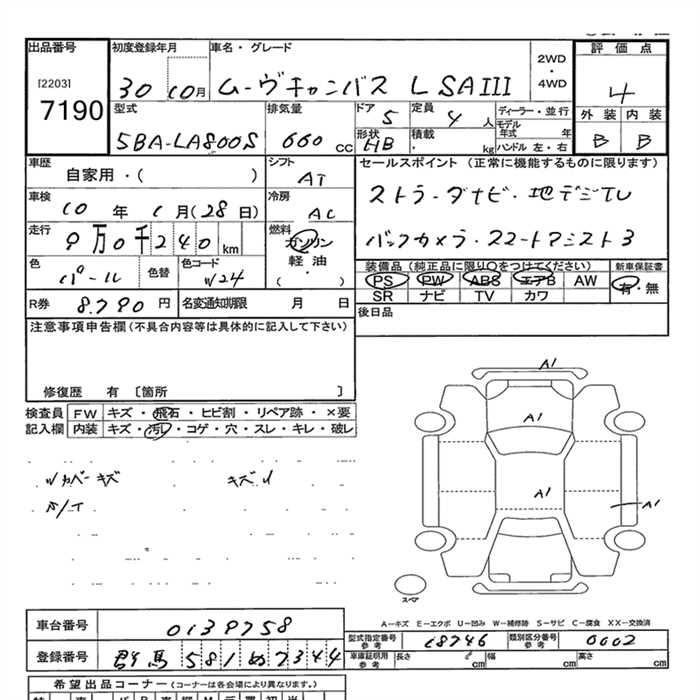 出品番号 初度登録年月 車名・グレード 評価点
[2203] 30 年 10月 ムーヴキャンバス L SAIII 2WD・4WD 4
7190 型式 排気量 ドア 5 定員 4 人 ディーラー・並行 外装 内装
5BA-LA800S 660 CC 形状 HB 積載 kg モデル年式 年 ハンドル 左・右 B B
車歴 シフト セールスポイント (正常に機能するものに限ります)
自家用・( ) AT
車検 冷房 ストラーダナビ・地デジTV
10 年 1月(28日) AC
走行 9万0千240km 燃料 ガソリン 軽油・( ) バックカメラ・スマートアシスト3
色 パール 色替 色コード W24 装備品(純正品に限り○をつけてください) 新車保証書
PS PW ABS エアB AW 有・無
R券 8,790 円 名変通知期限 月 日 SR ナビ TV カワ
注意事項申告欄(不具合内容等は具体的に記入して下さい) 後日品
修復歴 有 〔箇所 〕
検査員 FW キズ・飛石・ヒビ割・リペア跡・×要
記入欄 内装 キズ・汚レ・コゲ・穴・スレ・キレ・破レ
キズ
A1
A1
A1
A1
スペア
A-キズ E-エクボ U-凹み W-補修跡 S-サビ C-腐食 XX-交換済
車台番号 0139758
型式指定番号 参考 18746 類別区分番号 参考 0002
登録番号 群馬 581 ぬ 7344
車庫証明用 参考 長さ cm 幅 cm 高さ cm
希望出品コーナー(コーナーは各会場により異なります。)